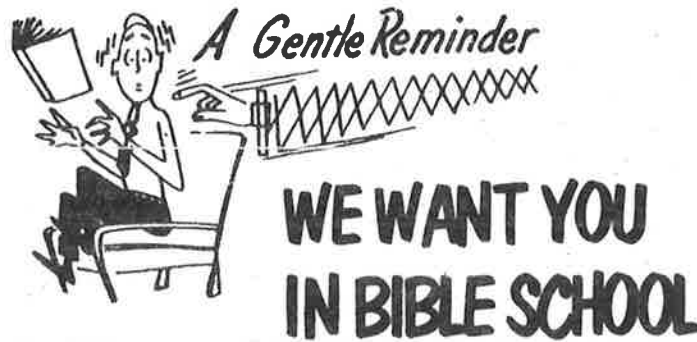 A Gentle Reminder
WE WANT YOU
IN BIBLE SCHOOL